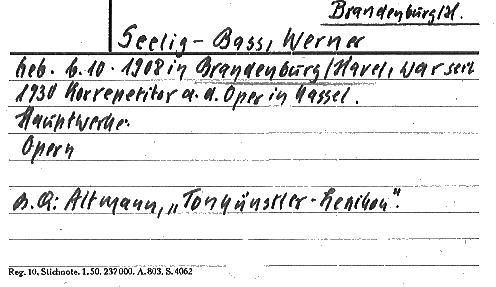 Brandenburg/H.
Seelig-Bass, Werner
Geb. 6.10.1908 in Brandenburg/Havel, war seit
1930 Korrepetitor a. d. Oper in Kassel.
Hauptwerke:
Opern
Altmann, „Tonkünstler-Lexikon".
Reg. 10. Stichnote. 1. 50. 237000. A. 803. S. 4062